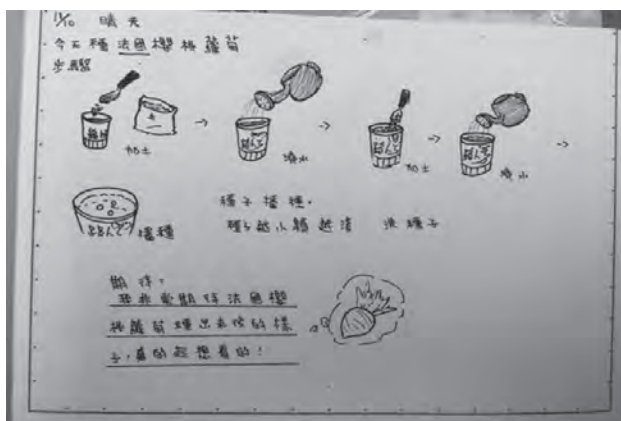 11/10 晴天
今天種法國櫻桃蘿蔔
步驟
加土
澆水
加土
澆水
播種
種子播種。
種子越小顆越淺
期待:
我非常期待法國櫻
桃蘿蔔種出來後的樣
子,真的超想看的!